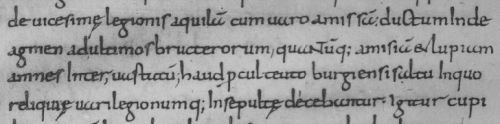 deuicesime legionis aquilā cum uaro amissā; ductum Inde
agmen adultimosbructerorum, quantūq; amisiā & lupiam
amnes Inter, uastatū; haud pcul teuto burgiensi saltu Inquo
reliquię uari legionumq; Insepultę dicebantur. Igitur cupi